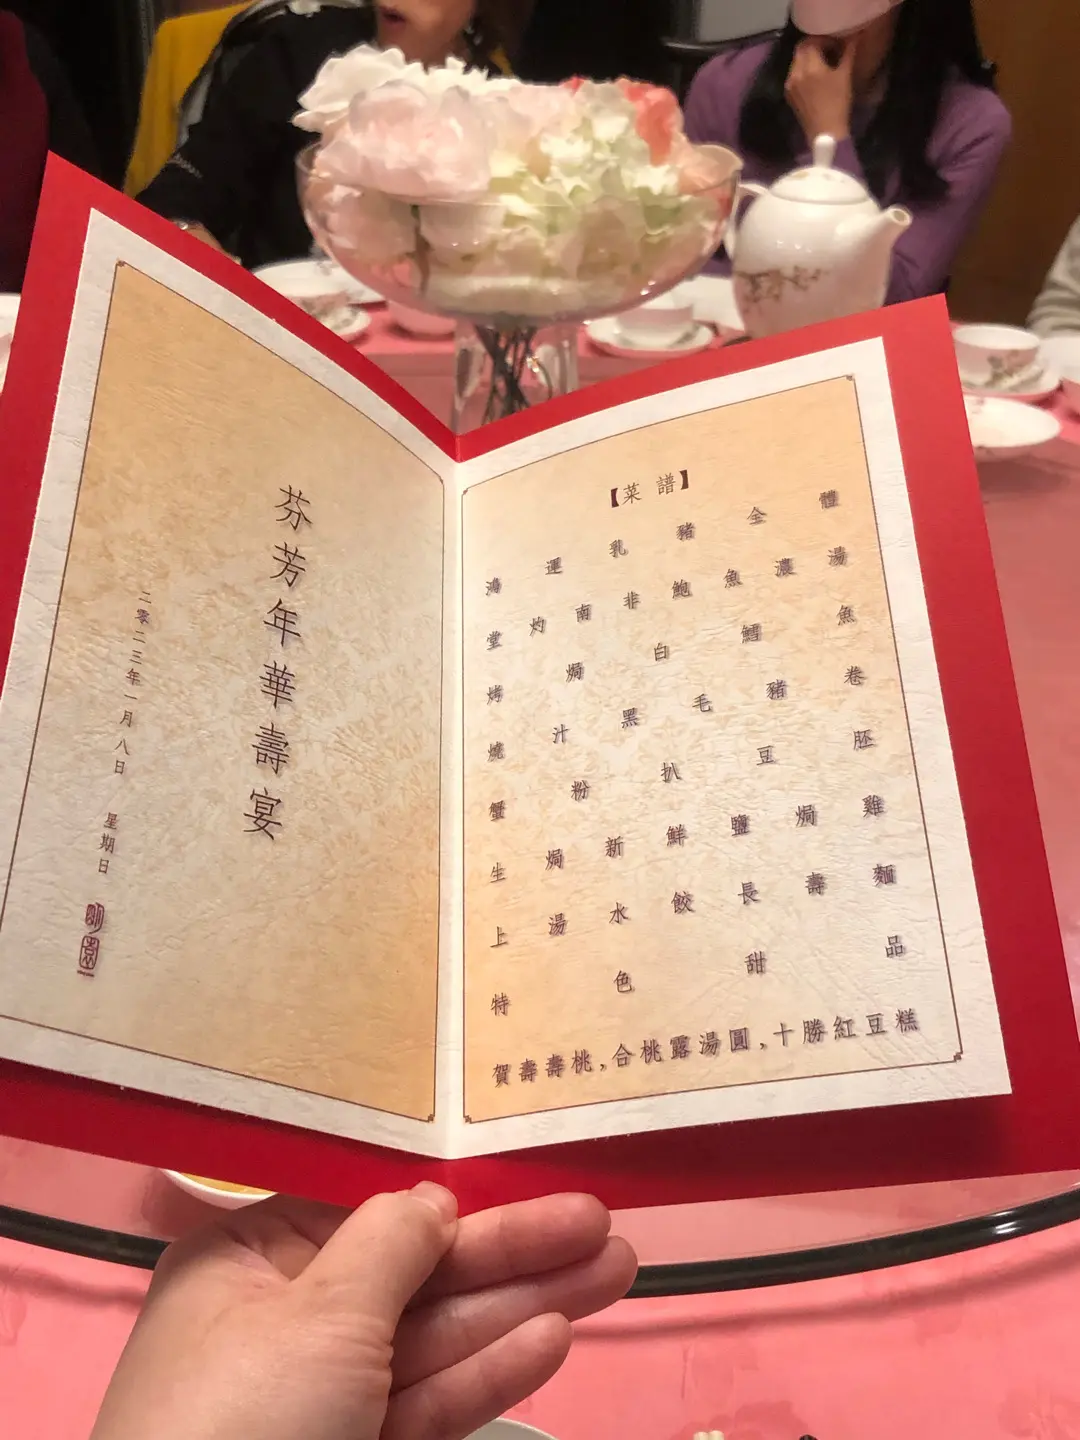 芬芳年華壽宴
二零二三年一月八日 星期日
【菜譜】
鴻運乳豬全體
堂灼南非鮑魚濃湯
烤焗白鱈魚
燒汁黑毛豬卷
蟹粉扒豆胚
生焗新鮮鹽焗雞
上湯水餃長壽麵
特色甜品
賀壽壽桃,合桃露湯圓,十勝紅豆糕